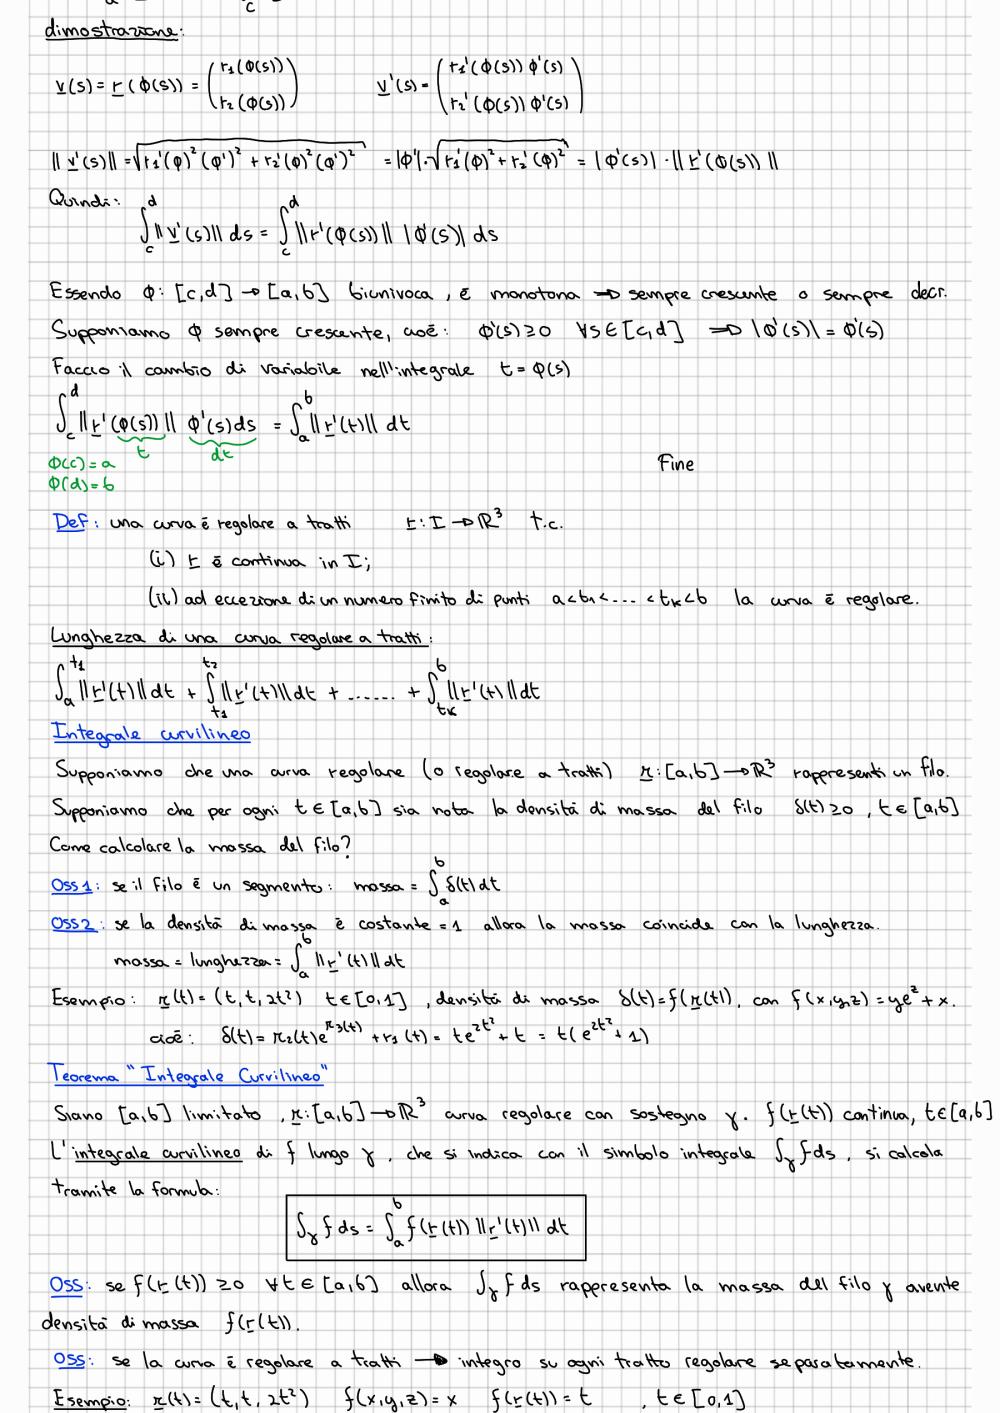 c
dimostrazione:
v(s) = r(ϕ(s)) = (r₁(ϕ(s)) r₂(ϕ(s))) v'(s) = (r₁'(ϕ(s)) ϕ'(s) r₂'(ϕ(s)) ϕ'(s))
||v'(s)|| = √(r₁'(ϕ)²(ϕ')² + r₂'(ϕ)²(ϕ')²) = |ϕ'|·√(r₁'(ϕ)² + r₂'(ϕ)²) = |ϕ'(s)|·||r'(ϕ(s))||
Quindi:
∫_c^d ||v'(s)|| ds = ∫_c^d ||r'(ϕ(s))|| |ϕ'(s)| ds
Essendo ϕ: [c,d] → [a,b] biunivoca, è monotona ⇒ sempre crescente o sempre decr.
Supponiamo ϕ sempre crescente, cioè: ϕ'(s) ≥ 0 ∀s∈[c,d] ⇒ |ϕ'(s)| = ϕ'(s)
Faccio il cambio di variabile nell'integrale t = ϕ(s)
∫_c^d ||r'(ϕ(s))|| ϕ'(s)ds = ∫_a^b ||r'(t)|| dt
t dt
ϕ(c) = a Fine
ϕ(d) = b
Def: una curva è regolare a tratti r: I → ℝ³ t.c.
(i) r è continua in I;
(ii) ad eccezione di un numero finito di punti a<t₁<...<tₖ<b la curva è regolare.
Lunghezza di una curva regolare a tratti:
∫_a^t₁ ||r'(t)|| dt + ∫_t₁^t₂ ||r'(t)|| dt + ...... + ∫_tₖ^b ||r'(t)|| dt
Integrale curvilineo
Supponiamo che una curva regolare (o regolare a tratti) r: [a,b] → ℝ³ rappresenti un filo.
Supponiamo che per ogni t ∈ [a,b] sia nota la densità di massa del filo δ(t) ≥ 0, t ∈ [a,b]
Come calcolare la massa del filo?
Oss1: se il filo è un segmento: massa = ∫_a^b δ(t) dt
Oss2: se la densità di massa è costante = 1 allora la massa coincide con la lunghezza.
massa = lunghezza = ∫_a^b ||r'(t)|| dt
Esempio: r(t) = (t, t, 2t²) t∈[0,1], densità di massa δ(t) = f(r(t)), con f(x,y,z) = ye^z + x.
cioè: δ(t) = r₂(t)e^{r₃(t)} + r₁(t) = te^{2t²} + t = t(e^{2t²} + 1)
Teorema "Integrale Curvilineo"
Siano [a,b] limitato, r: [a,b] → ℝ³ curva regolare con sostegno γ. f(r(t)) continua, t∈[a,b]
L'integrale curvilineo di f lungo γ, che si indica con il simbolo integrale ∫_γ f ds, si calcola
tramite la formula:
∫_γ f ds = ∫_a^b f(r(t)) ||r'(t)|| dt
Oss: se f(r(t)) ≥ 0 ∀t ∈ [a,b] allora ∫_γ f ds rappresenta la massa del filo γ avente
densità di massa f(r(t)).
Oss: se la curva è regolare a tratti → integro su ogni tratto regolare separatamente.
Esempio: r(t) = (t, t, 2t²) f(x,y,z) = x f(r(t)) = t , t∈[0,1]